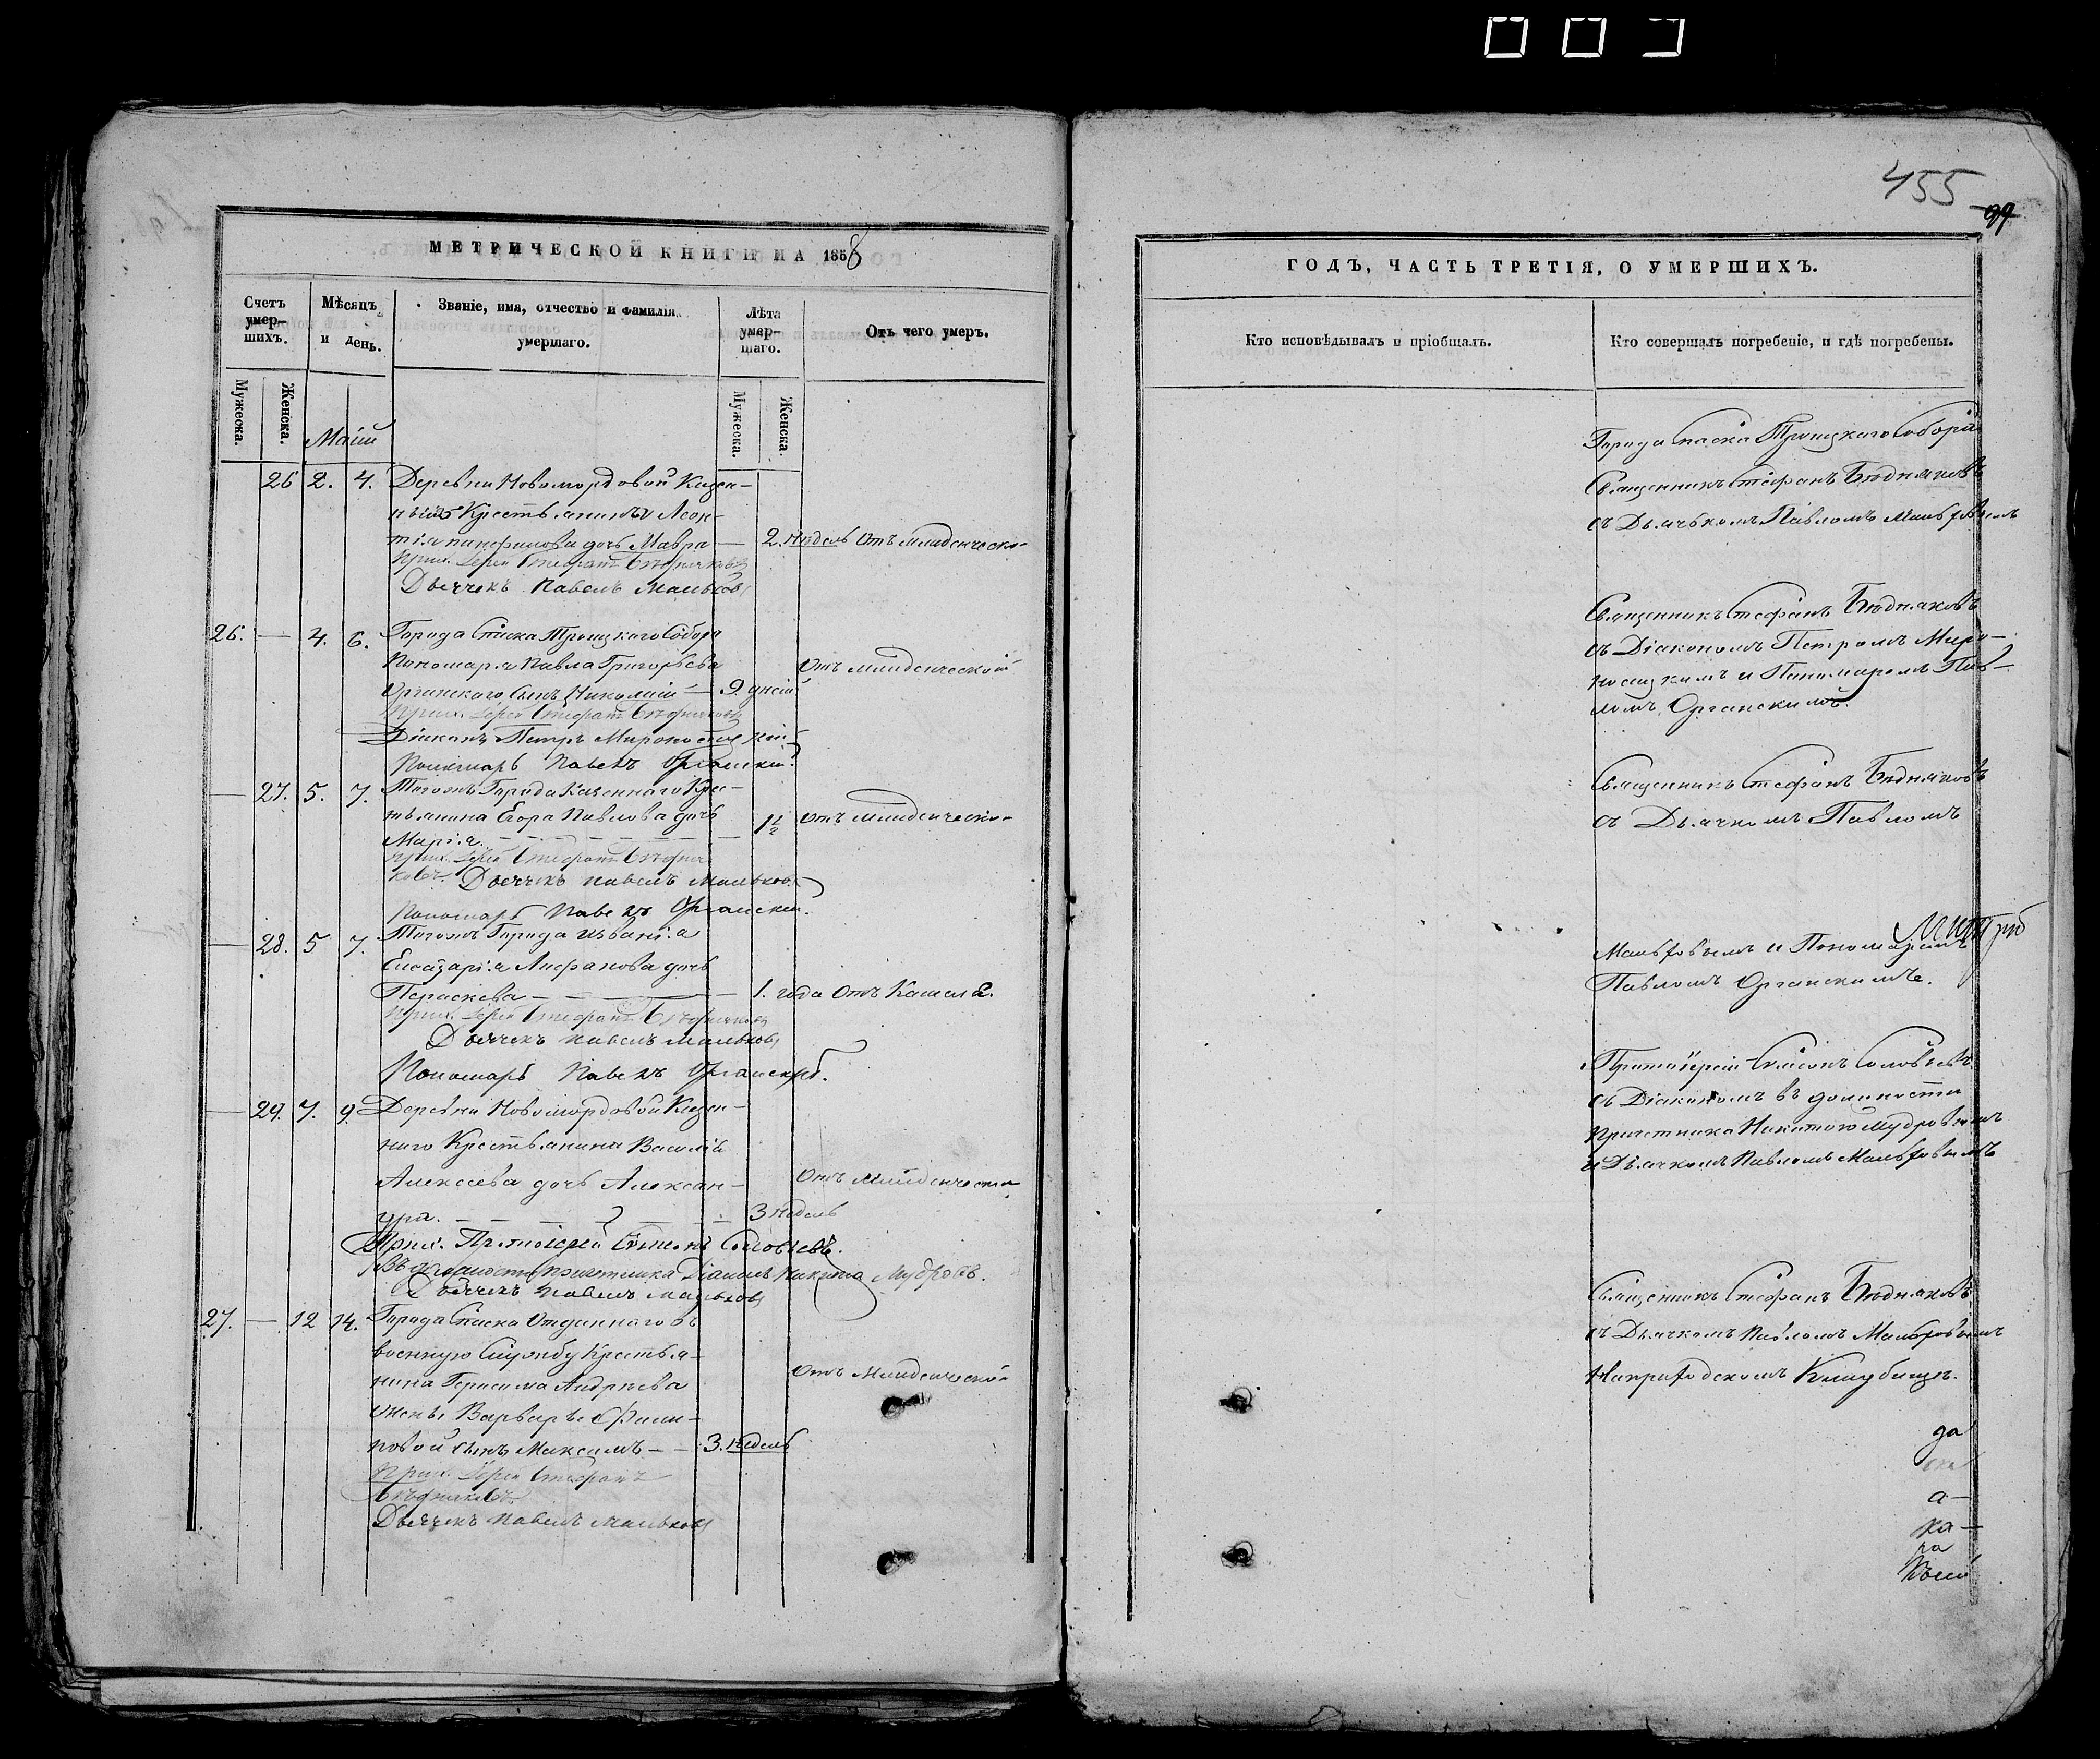 455
99
МЕТРИЧЕСКОЙ КНИГИ НА 1858
Счетъ умер-шихъ.
Мѣсяцъ и день.
Званіе, имя, отчество и фамилія умершаго.
Лѣта умер-шаго.
Отъ чего умеръ.
Мужеска.
Женска.
Мужеска.
Женска.
Маій
26 2. 4. Деревни Новомордовой Казен-
Крестьянина Леон-
тія Панфилова дочь Мавра — 2. недель Отъ младенческой
Прих. Іерей Стефанъ Бѣдняковъ
Дьячекъ Павелъ Мальковъ
26. — 4. 6. Города Спаска Троицкаго Собора
Пономаря Павла Григорьева
Отъ младенческой
Органскаго Сынъ Николай — 9. дней
Прих. Іерей Стефанъ Бѣдняковъ
Діаконъ Петръ Мироносицкій
Пономарь Павелъ Органскій.
— 27. 5. 7. Тогожъ Города Казеннаго Крес-
тьянина Егора Павлова дочь
Марія. — 1½ отъ младенческой
Прих. Іерей Стефанъ Бѣдня-
ковъ. Дьячекъ Павелъ Мальковъ
Пономарь Павелъ Органскій.
— 28. 5 7. Тогожъ Города
дочь
Параскева — 1. года Отъ Кашля.
Прих. Іерей Стефанъ Бѣдняковъ
Дьячекъ Павелъ Мальковъ
Пономарь Павелъ Органскій.
— 29. 7. 9. Деревни Новомордовой Казен-
наго Крестьянина Василія
Алексеева дочь Алексан-
Отъ Младенческой
дра. — 3 недель
Прих. Протоіерей Симеонъ Соловьевъ.
Въ должности причетника Діаконъ Никита Мудровъ.
Дьячекъ Павелъ Мальковъ
27. — 12 14. Города Спаска Отданнаго въ
военную Службу Крестья-
нина Герасима Андреева
Отъ Младенческой
жены Варвары Фили-
повой сынъ Максимъ — 3. недель
Прих. Іерей Стефанъ
Бѣдняковъ.
Дьячекъ Павелъ Мальковъ
ГОДЪ, ЧАСТЬ ТРЕТІЯ, О УМЕРШИХЪ.
Кто исповѣдывалъ и пріобщалъ.
Кто совершалъ погребеніе, и гдѣ погребены.
Города Спаска Троицкаго Собора
Священникъ Стефанъ Бѣдняковъ
съ Дьячкомъ Павломъ Мальковымъ
Священникъ Стефанъ Бѣдняковъ
съ Діакономъ Петромъ Миро-
носицкимъ и Пономаремъ Пав-
ломъ Органскимъ.
Священникъ Стефанъ Бѣдняковъ
съ Дьячкомъ Павломъ
Мальковымъ и Пономаремъ
Павломъ Органскимъ.
Протоіерей Симеонъ Соловьевъ
съ Діакономъ въ должности
Причетника Никитою Мудровымъ
и Дьячкомъ Павломъ Мальковымъ
Священникъ Стефанъ Бѣдняковъ
съ Дьячкомъ Павломъ Мальковымъ
На Кладбищѣ.
да
а-
ка-
ра